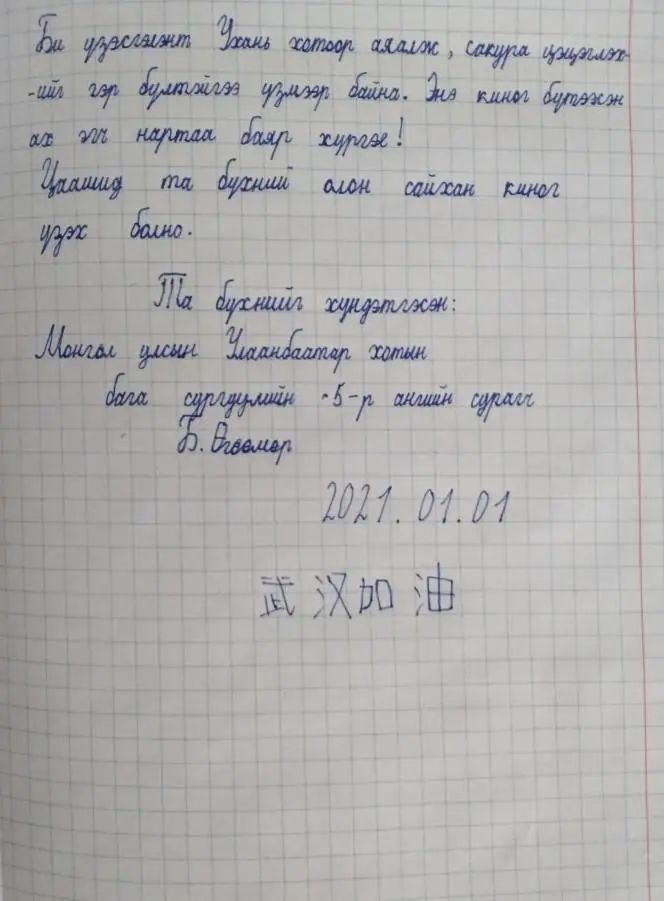 Би үзэсгэлэнт Ухань хотоор аялаж, сакура цэцэглэх-
-ийг гэр бүлтэйгээ үзмээр байна. Энэ киног бүтээсэн
ах эгч нартаа баяр хүргэе!
Цаашид та бүхний олон сайхан киног
үзэх болно.
Та бүхнийг хүндэтгэсэн:
Монгол улсын Улаанбаатар хотын
бага сургуулийн -5-р ангийн сурагч
Б. Өгөөмөр
2021.01.01
武汉加油